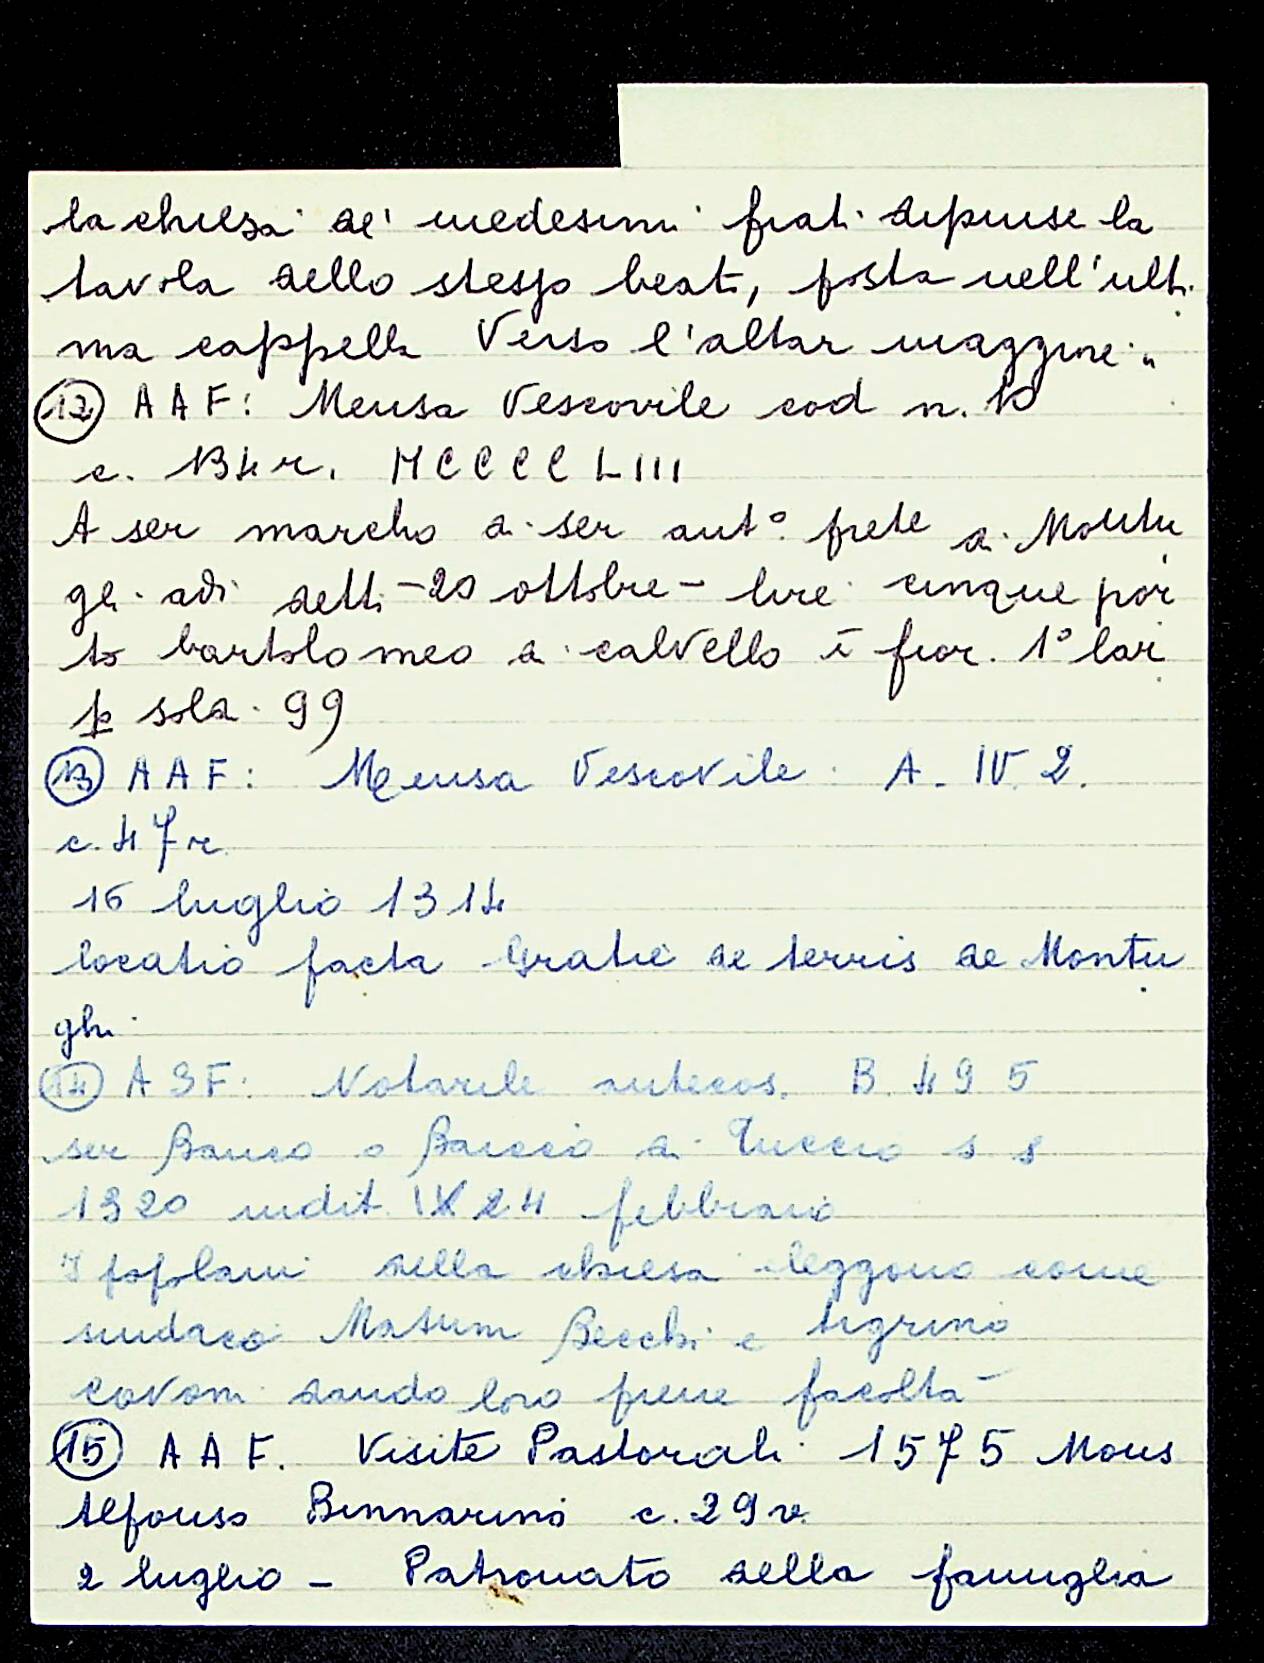 la chiesa de' medesimi frati dipinse la
tavola dello stesso beato, posta nell'ulti
ma cappella verso l'altar maggiore"
(12) AAF: Mensa Vescovile cod n. 10
c. 134 r. MCCCCLIII
A ser marcho di ser ant° prete di Montu
ghi adi detti -20 ottobre- lire cinque por
to bartolomeo di calvello ī fior. 1° lar
p sola. 99
(13) AAF: Mensa Vescovile A. IV 2.
c. 47r
16 luglio 1314
locatio facta Gratie de terris de Montu
ghi
(14) ASF: Notarile antecos. B. 495
ser Banco o Baccio di Tuccio s s
1320 indit. IX 24 febbraio
I popolani della chiesa eleggono come
sindaco Masum Becchi e tigrino
covoni dando loro piene facoltà
(15) AAF. Visite Pastorali 1575 Mons
Alfonso Binnarino c. 29 v.
2 luglio - Patronato della famiglia